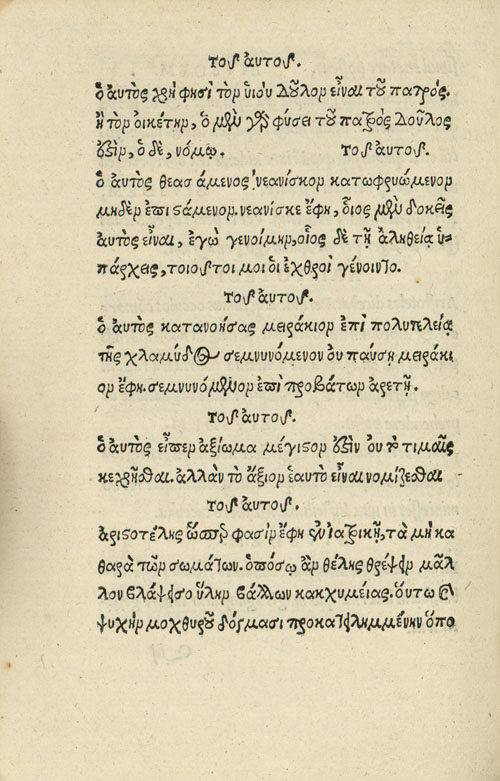 τοῦ αὐτοῦ.
ὁ αὐτὸς χρή φησι τὸν υἱὸν δοῦλον εἶναι τοῦ πατρός.
ἢ τὸν οἰκέτην, ὁ μὲν γὰρ φύσει τοῦ πατρὸς δοῦλος
ἐστὶν, ὁ δὲ, νόμῳ. τοῦ αὐτοῦ.
ὁ αὐτὸς θεασάμενος νεανίσκον κατωφρυώμενον
μηδὲν ἐπιστάμενον. νεανίσκε ἔφη, οἷος μὲν δοκεῖς
αὐτὸς εἶναι, ἐγὼ γενοίμην, οἷος δὲ τῇ ἀληθείᾳ ὑ-
πάρχεις, τοιοῦτοι μοι οἱ ἐχθροὶ γένοιντο.
τοῦ αὐτοῦ.
ὁ αὐτὸς κατανοήσας μειράκιον ἐπὶ πολυτελείᾳ
τῆς χλαμύδος σεμνυνόμενον οὐ παύσῃ μειράκι
ον ἔφη. σεμνυνόμενον ἐπὶ προβάτων ἀρετῇ.
τοῦ αὐτοῦ.
ὁ αὐτὸς εἶπεν ἀξίωμα μέγιστον ἐστὶν οὐ τὸ τιμαῖς
κεχρῆσθαι. ἀλλὰν τὸ ἄξιον ἑαυτὸ εἶναι νομίζεσθαι
τοῦ αὐτοῦ.
ἀριστοτέλης ὥσπερ φασὶν ἔφη ἐν ἰατρικῇ, τὰ μὴ κα
θαρὰ τῶν σωμάτων. ὁπόσῳ ἂν θέλῃς θρέψειν μᾶλ
λον βλάψεις ὕλην βάλλων κακχυμείας. οὕτω καὶ
ψυχὴν μοχθηροῦ δόγμασι προκατειλημμένην ὅπο